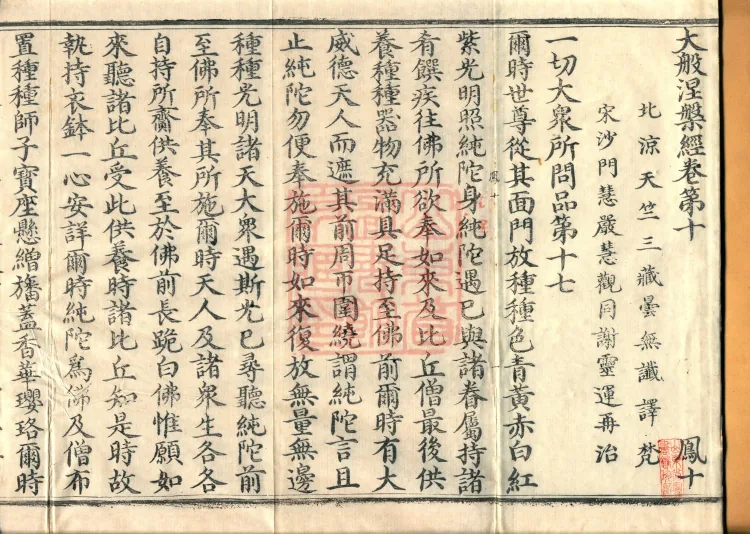 大般涅槃經卷第十 鳳十
北涼天竺三藏曇無讖譯梵
宋沙門慧嚴慧觀同謝靈運再治
一切大衆所問品第十七
爾時世尊從其面門放種種色青黃赤白紅
紫光明照純陀身純陀遇已與諸眷屬持諸
肴饌疾往佛所欲奉如來及比丘僧最後供
養種種器物充滿具足持至佛前爾時有大
威德天人而遮其前周帀圍繞謂純陀言且
止純陀勿便奉施爾時如來復放無量無邊
種種光明諸天大衆遇斯光已尋聽純陀前
至佛所奉其所施爾時天人及諸衆生各各
自持所齎供養至於佛前長跪白佛惟願如
來聽諸比丘受此供養時諸比丘知是時故
執持衣鉢一心安詳爾時純陀爲佛及僧布
置種種師子寶座懸繒旛蓋香華瓔珞爾時